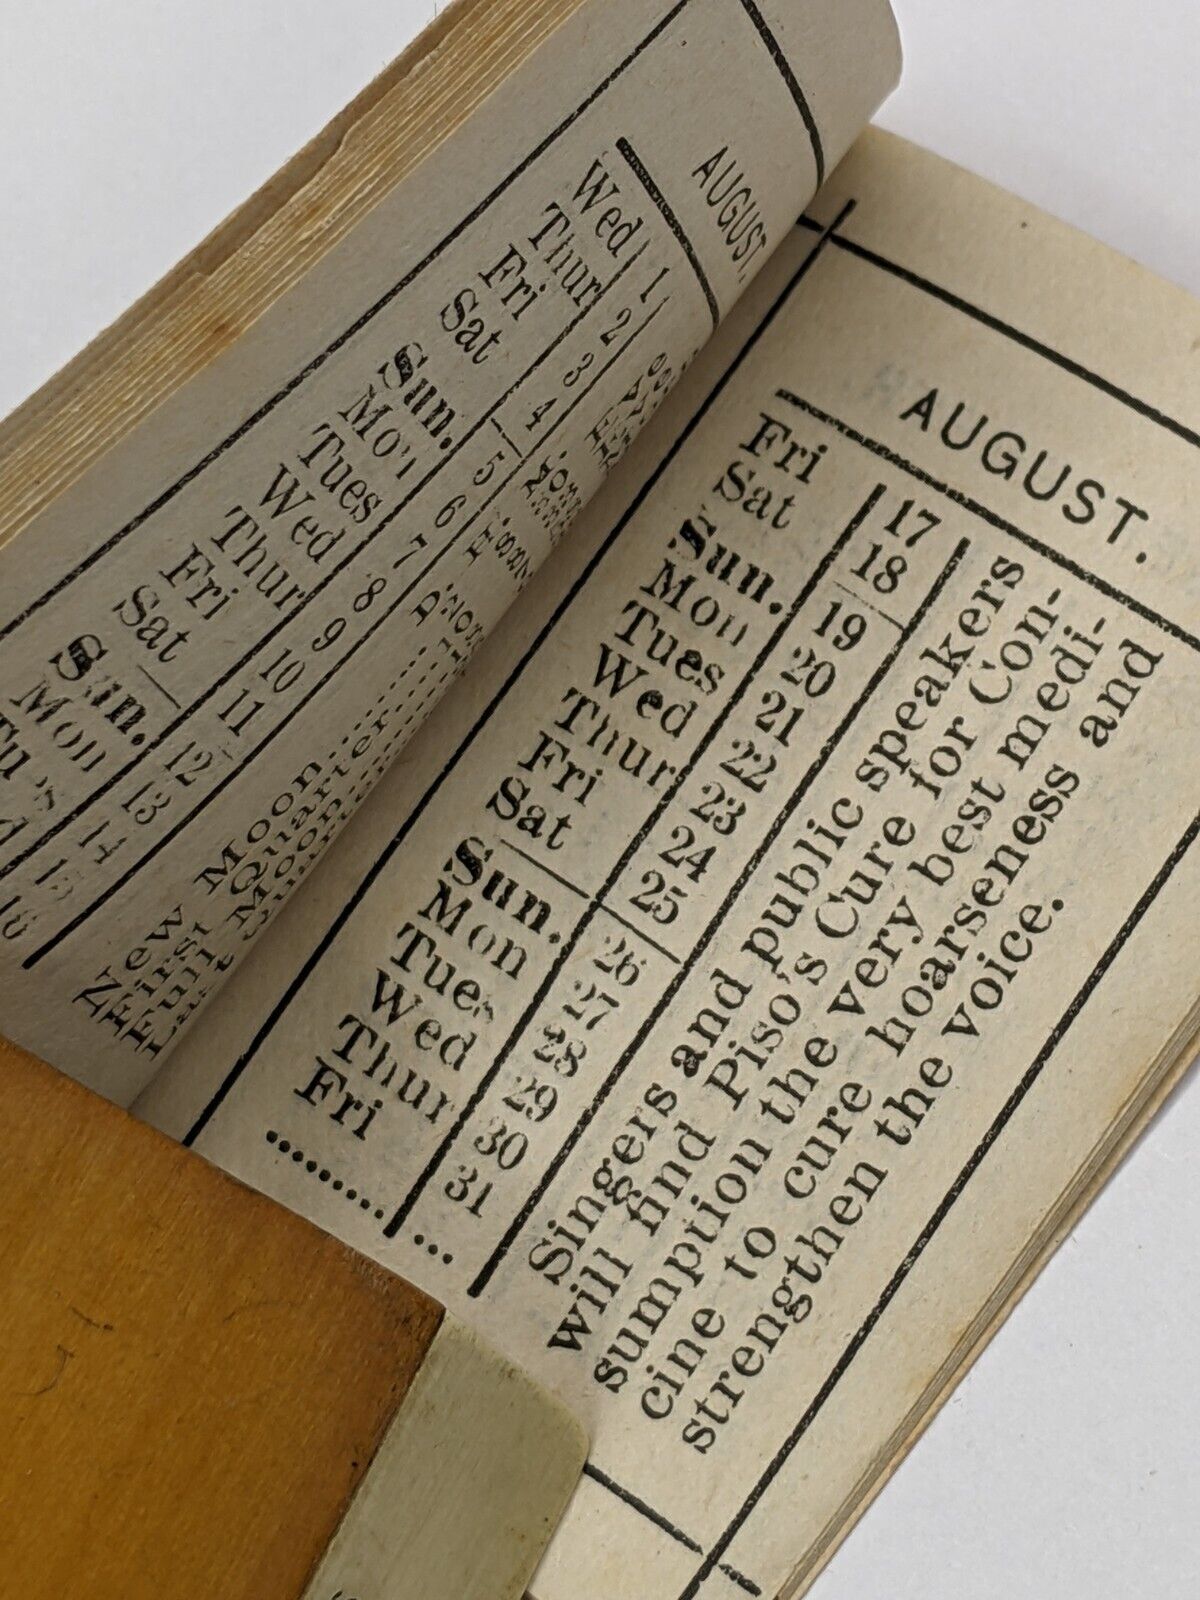 AUGUST.
Wed 1
Thur 2
Fri 3
Sat 4
Sun. 5
Mon 6
Tues 7
Wed 8
Thur 9
Fri 10
Sat 11
Sun. 12
Mon 13
14
15
16
New Moon
First Quarter
Full Moon
AUGUST.
Fri 17
Sat 18
Sun. 19
Mon 20
Tues 21
Wed 22
Thur 23
Fri 24
Sat 25
Sun. 26
Mon 27
Tues 28
Wed 29
Thur 30
Fri 31
......... ...
Singers and public speakers
will find Piso's Cure for Con-
sumption the very best medi-
cine to cure hoarseness and
strengthen the voice.